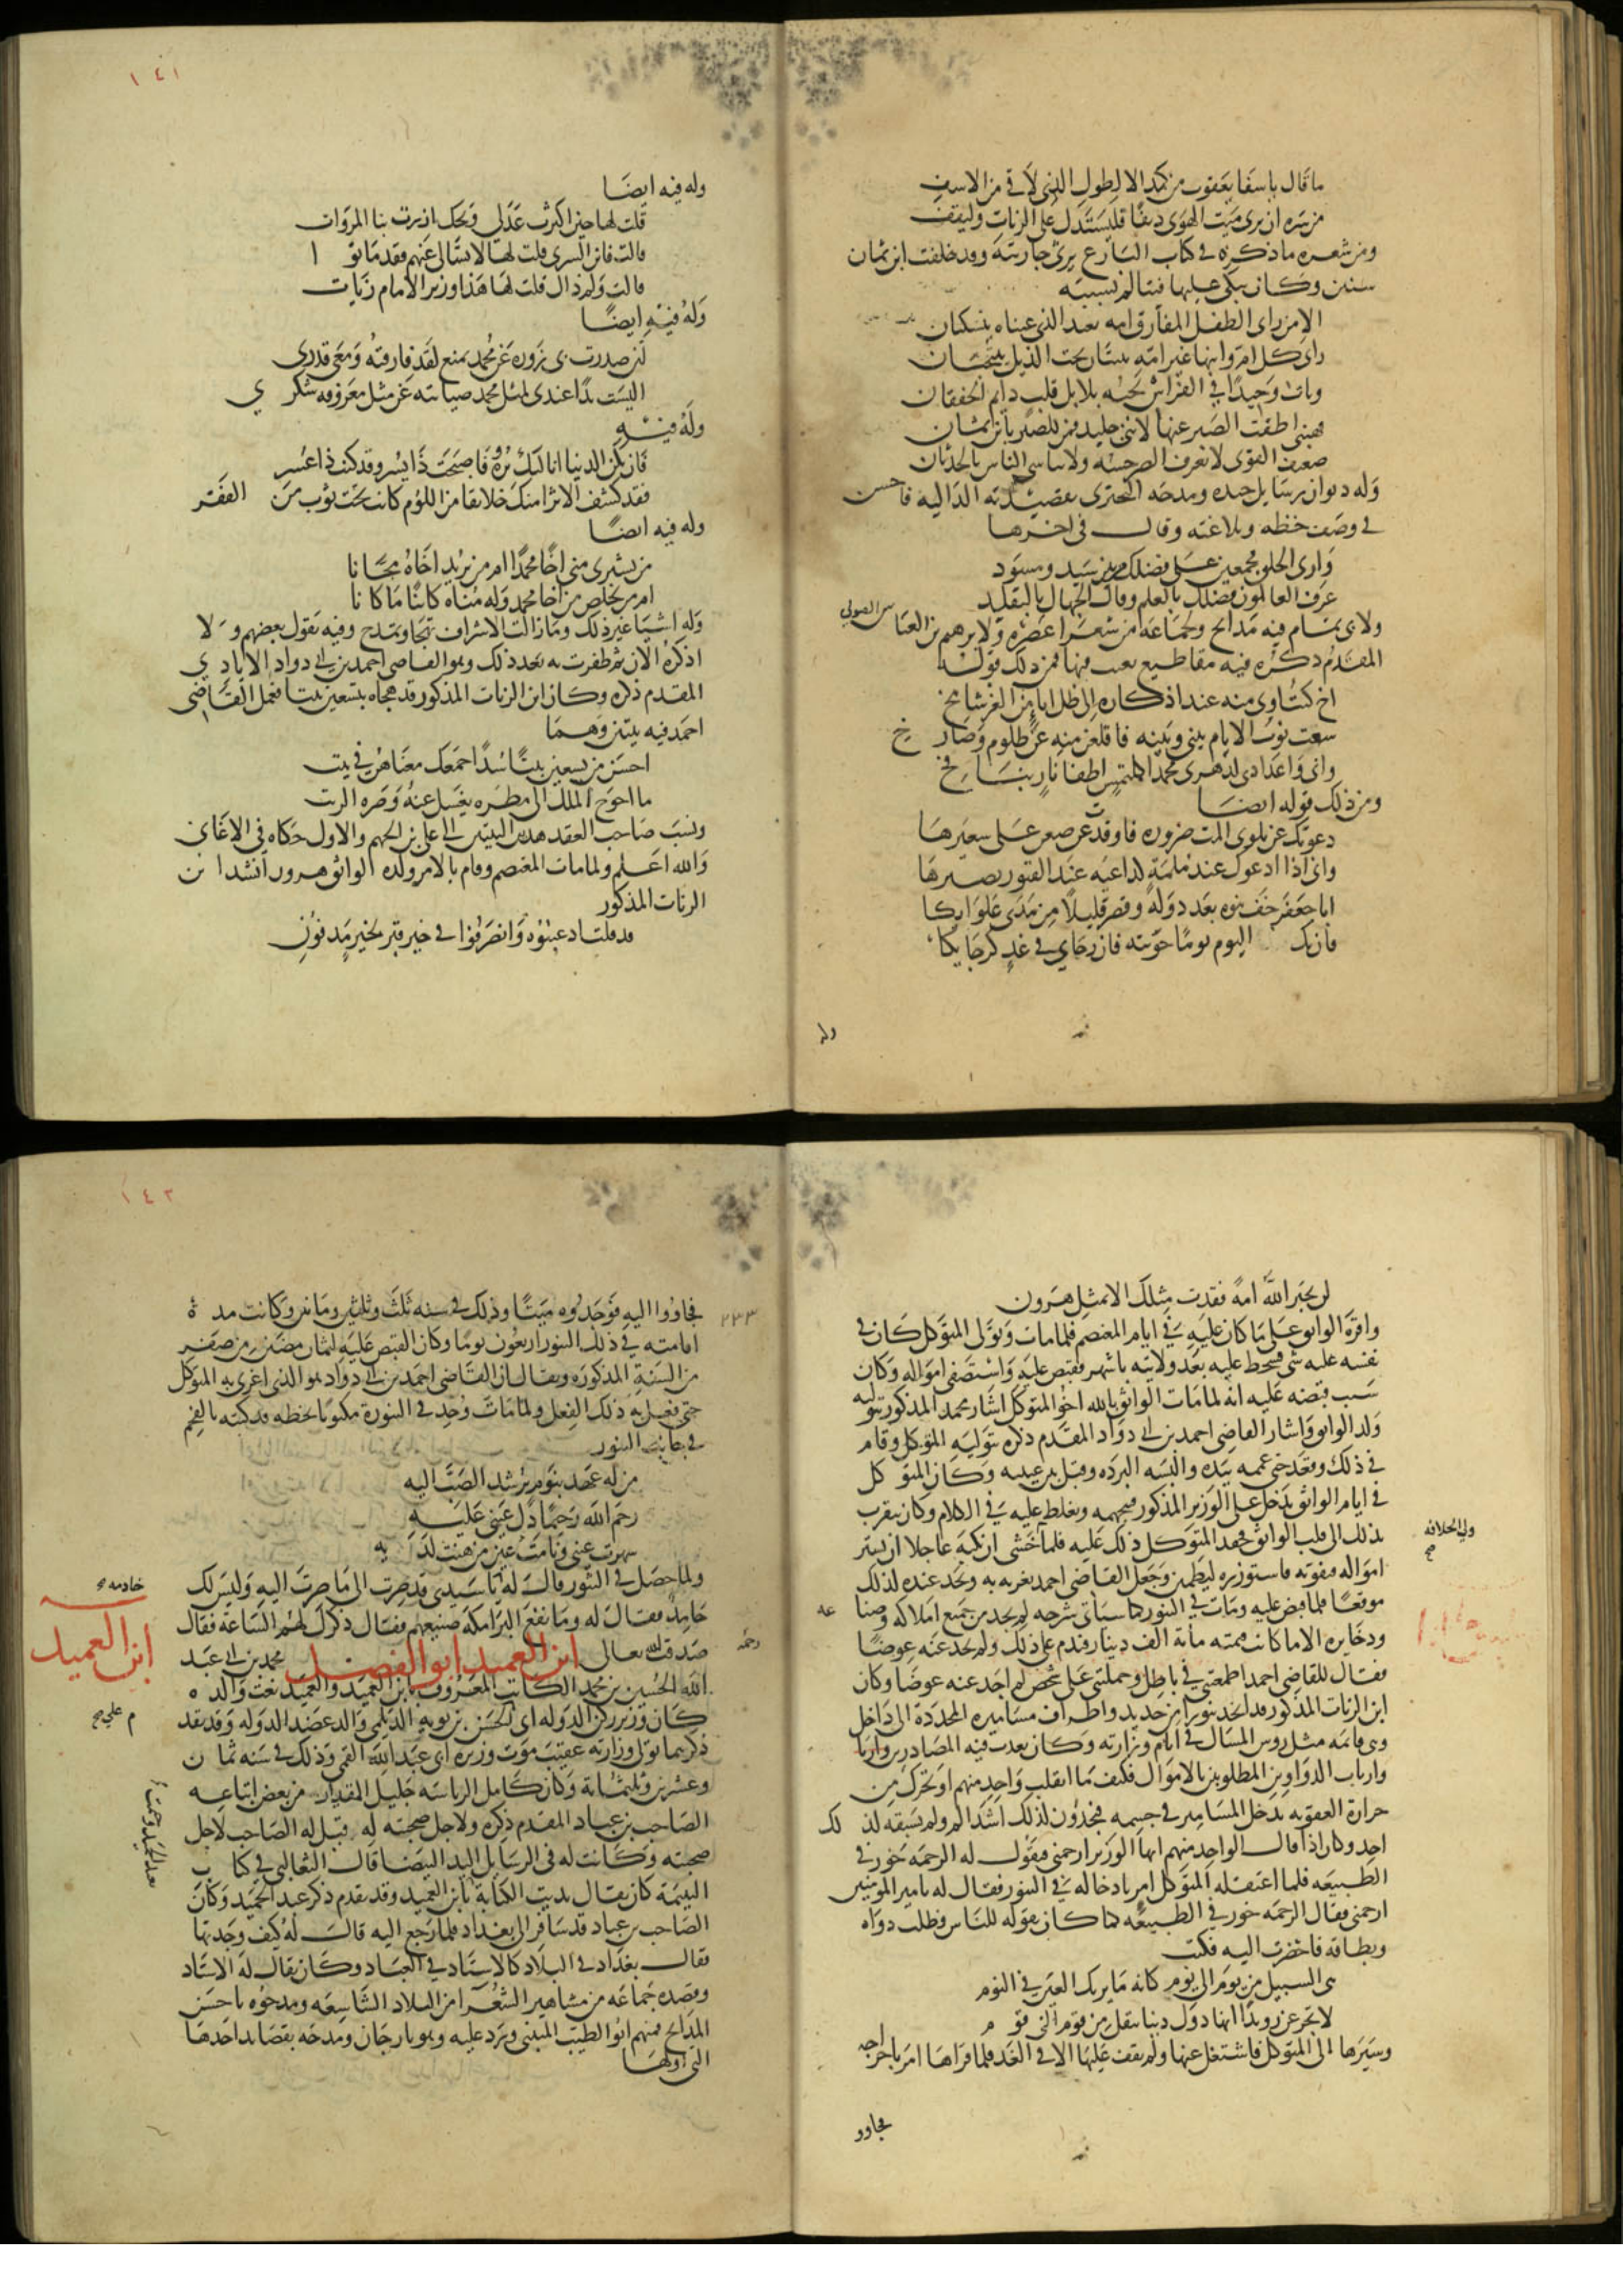 ما قال يا سفا يعقوب من كمد الا لطول الذي لاقى من الاسف
من سره ان يرى ميت الهوى دنفا فليستدل على الزيات وليقف
ومن شعره ما ذكره في كتاب البارع يرثي جاريته وقد خلفت ابن ثمان
سنين وكان يبكي عليها فيتالم بسببه
الا من راى الطفل المفارق امه بعيد الذي عيناه ينسكبان
راى كل ام وابنها غير امه يبيتان تحت الذيل ينتجيان
وبات وحيدا في الفراش تحثه بلابل قلب دايم الخفقان
فهبني اطقت الصبر عنها لانني جليد فمن للصبر بابن ثمان
ضعيف القوى لا يعرف الصبر حسبة ولا ياتسي بالناس بالحدثان
وله ديوان رسايل جيده ومدحه البحتري بقصيدته الداليه فاحسن
في وصف خطه وبلاغته وقال في اخرها
وارى الخلق مجمعين على فضلك من بين سيد ومسود
عرف العالمون فضلك بالعلم وقال الجهال بالتقليد
ولابي تمام فيه مدائح ولجماعه من شعراء عصره ولابرهيم بن العباس الصولي
المقدم ذكره فيه مقاطيع يعبث فيها فمن ذلك قوله
اخ كنت اوي منه عند اذكاره الى ظل اباء من العز شامخ
سعت نوب الايام بيني وبينه فاقلعن منه عن ظلوم وصارخ
واني واعدادي لدهري محمدا كملتمس اطفا نار بنافخ
ومن ذلك قوله ايضا
دعوتك عن بلوى المت ضروره فاوقدت عن ضغن على سعيرها
واني اذا ادعوك عند ملمة كداعيه عند القبور نصيرها
ابا جعفر خف نبوه بعد دولة وقصر قليلا من مدى غلوايكا
فان يك اليوم يوما حويته فان رجاي في غد كرجايكا
وله
١٤١
وله فيه ايضا
قلت لها حين اكثرت عذلي ويحك ازرت بنا المروات
قالت فاين السرى قلت لها لا تسالي عنهم فقد ماتوا
قالت ولم ذاك قلت لها هذا وزير الامام زيات
وله فيه ايضا
لئن صدرت بي زوره عن محمد بمنع لقد فارقته ومعي قدري
اليست يدا عندي لمثل محمد صيانته عن مثل معروفه شكري
وله فيه
فان تكن الدنيا انالتك ثروة فاصبحت ذا يسر وقد كنت ذا عسر
فقد كشف الاثرا منك خلائقا من اللؤم كانت تحت ثوب من الفقر
وله فيه ايضا
من يشتري مني اخا محمدا ام من يريد اخاه مجانا
ام من يخلص من اخا محمد وله مناه كائنا ما كانا
وله اشيا غير ذلك وما زالت الاشراف تهجا وتمدح وفيه يقول بعضهم ولا
اذكره الان ثم ظفرت به بعد ذلك وهو القاضي احمد بن ابي دواد الايادي
المقدم ذكره وكان ابن الزيات المذكور قد هجاه بتسعين بيتا فعمل القاضي
احمد فيه بيتين وهما
احسن من تسعين بيتا سدا جمعك معناهن في بيت
ما احوج الملك الى مطره يغسل عنه وضره الزيت
ونسب صاحب العقد هذين البيتين الى علي بن الجهم والاول حكاه في الاغاني
والله اعلم ولما مات المعتصم وقام بالامر ولده الواثق هرون انشد ابن
الزيات المذكور
قد قلت اذ غيبوه وانصرفوا في خير قبر لخير مدفون
لن يجبر الله امة فقدت مثلك الا بمثل هرون
واقره الواثق على ما كان عليه في ايام المعتصم فلما مات وتولى المتوكل كان في
نفسه عليه شي فسخط عليه بعد ولايته باشهر فقبض عليه واستصفى امواله وكان
سبب قبضه عليه انه لما مات الواثق بالله اخو المتوكل اشار محمد المذكور بتوليه
ولد الواثق واشار القاضي احمد بن ابي دواد المقدم ذكره بتوليه المتوكل وقام
في ذلك وقعد حتى عممه بيده والبسه البرده وقبل بين عينيه وكان المتوكل
في ايام الواثق يدخل على الوزير المذكور فيتجهمه ويغلظ عليه في الكلام وكان يتقرب
بذلك الى قلب الواثق فحقد المتوكل ذلك عليه فلما خشي ان نكبه عاجلا ان يستر
ولي الخلافه
صح
امواله فيفوته فاستوزره ليطمئن وجعل القاضي احمد يغريه به ويجد عنده لذلك
موقعا فلما قبض عليه ومات في التنور كما سياتي شرحه لم يجد من جميع املاكه وضياعه
وذخايره الا ما كانت قيمته ماية الف دينار فندم على ذلك ولم يجد عنه عوضا
فقال للقاضي احمد اطمعتني في باطل وحملتني على شخص لم اجد عنه عوضا وكان
ابن الزيات المذكور قد اتخذ تنورا من حديد واطراف مساميره المحددة الى داخل
وهي قائمه مثل روس المسال في ايام وزارته وكان يعذب فيه المصادرين
وارباب الدواوين المطلوبين بالاموال فكيف ما انقلب واحد منهم او تحرك من
حرارة العقوبه تدخل المسامير في جسمه فيجدون لذلك اشد الم ولم يسبقه لذلك
احد وكان اذا قال الواحد منهم ايها الوزير ارحمني فيقول له الرحمة خور في
الطبيعه فلما اعتقله المتوكل امر بادخاله في التنور فقال له يا مير المومنين
ارحمني فقال الرحمه خور في الطبيعه كما كان يقوله للناس وطلب دواه
وبطاقه فاحضرت اليه فكتب
هي السبيل من يوم الى يوم كانه ما يريك العين في النوم
لا تجزعن رويدا انها دول دنيا تنقل من قوم الى قوم
وسيرها الى المتوكل فاشتغل عنها ولم يقف عليها الا في الغد فلما قراها امر باخراجه
فجاوو
١٤٢
فجاووا اليه فوجدوه ميتا وذلك في سنه ثلث وثلثين وماتين وكانت مدة
٢٣٣
اقامته في ذلك التنور اربعون يوما وكان القبض عليه لثمان مضين من صفر
من السنة المذكوره ويقال ان القاضي احمد بن ابي دواد هو الذي اغرى به المتوكل
حتى فعل به ذلك الفعل ولما مات وجد في التنورة مكتوبا بخطه قد كتبه بالفحم
في جانب التنور
من له عهد بنوم يرشد الصب اليه
رحم الله رحيما دل عيني عليه
سهرت عيني ونامت عين من هنت لديه
ولما حصل في التنور قال له يا سيدي قد صرت الى ما صرت اليه وليس لك
خادمه
حامد فقال له وما نفع البرامكة صنيعهم فقال ذكرك لهم الساعه فقال
صدقت رحمه الله تعالى ابن العميد ابو الفضل محمد بن ابي عبد
ابن العميد
الله الحسين بن محمد الكاتب المعروف بابن العميد والعميد نعت والده
كان وزير ركن الدوله ابي الحسن بن بويه الديلمي والد عضد الدوله وقد تقدم
علي صح
ذكرهما تولى وزارته عقيب موت وزيره ابي عبد الله القمي وذلك في سنه ثمان
وعشرين وثلثمائة وكان كامل الرياسه جليل المقدار من بعض اتباعه
الصاحب بن عباد المقدم ذكره ولاجل صحبته له قيل له الصاحب لاجل
صحبته وكانت له في الرسايل اليد البيضا قال الثعالبي في كتاب
اليتيمة كان يقال بديت الكتابة بابن العميد وقد تقدم ذكر عبد الحميد وكان
الصاحب بن عباد قد سافر الى بغداد فلما رجع اليه قال له كيف وجدتها
فقال بغداد في البلاد كالاستاد في العباد وكان يقال له الاستاد
وقصده جماعه من مشاهير الشعرا من البلاد الشاسعه ومدحوه باحسن
المدائح فمنهم ابو الطيب المتنبي ورد عليه وهو بارجان ومدحه بقصايد احدها
التي اولها